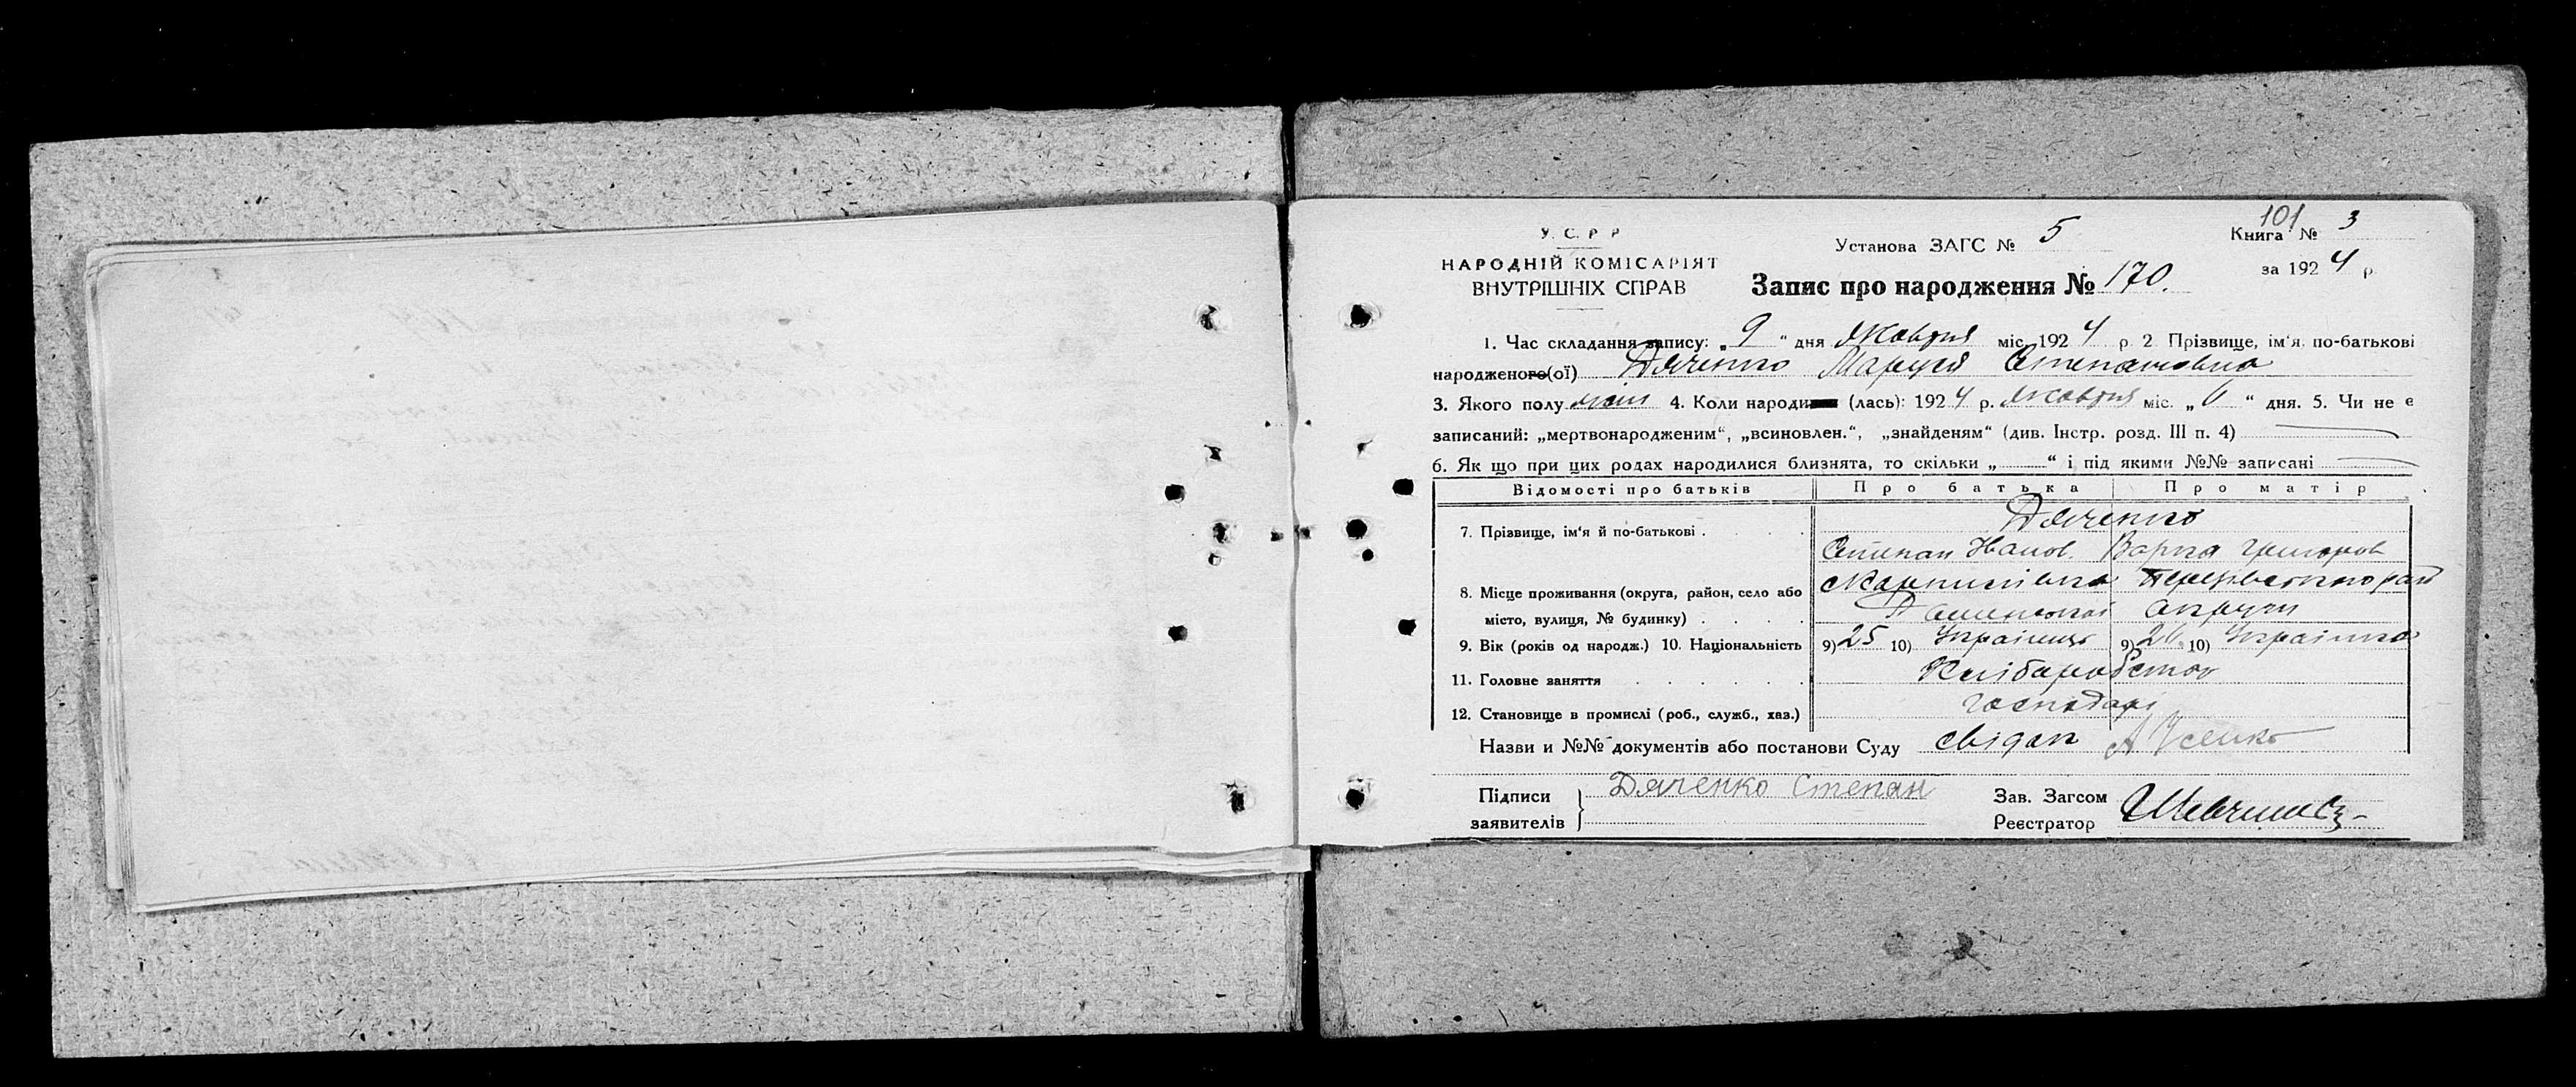 101
У. С. Р Р
Установа ЗАГС № 5
Книга № 3
НАРОДНІЙ КОМІСАРІЯТ
ВНУТРІШНІХ СПРАВ
Запис про народження № 170.
за 1924 р.
1. Час складання запису: „ 9 “ дня Жовтня міс. 1924 р. 2. Прізвище, ім'я, по-батькові
народженого(ої) Дяченко Маруся Степановна
3. Якого полу жін 4. Коли народи (лась): 1924 р. Жовтня міс. „ 6 “ дня. 5. Чи не є
записаний: „мертвонародженим“, „всиновлен.“, „знайденям“ (див. Інстр. розд. III п. 4)
6. Як що при цих родах народилися близнята, то скільки „ “ і під якими №№ записані
Відомості про батьків Про батька Про матір
7. Прізвище, ім'я й по-батькові . . . . Дяченко
Степан Іванов. Варка Григоров
8. Місце проживання (округа, район, село або
місто, вулиця, № будинку) . . . . округи
9. Вік (років од народж.) 10. Національність 9) 25 10) Українець 9) 26 10) Українка
11. Головне заняття . . . . . . Хліборобство
12. Становище в промислі (роб., служб., хаз.) господарі
Назви и №№ документів або постанови Суду А Усенко
Підписи
заявителів
Дяченко Степан
Зав. Загсом
Реєстратор